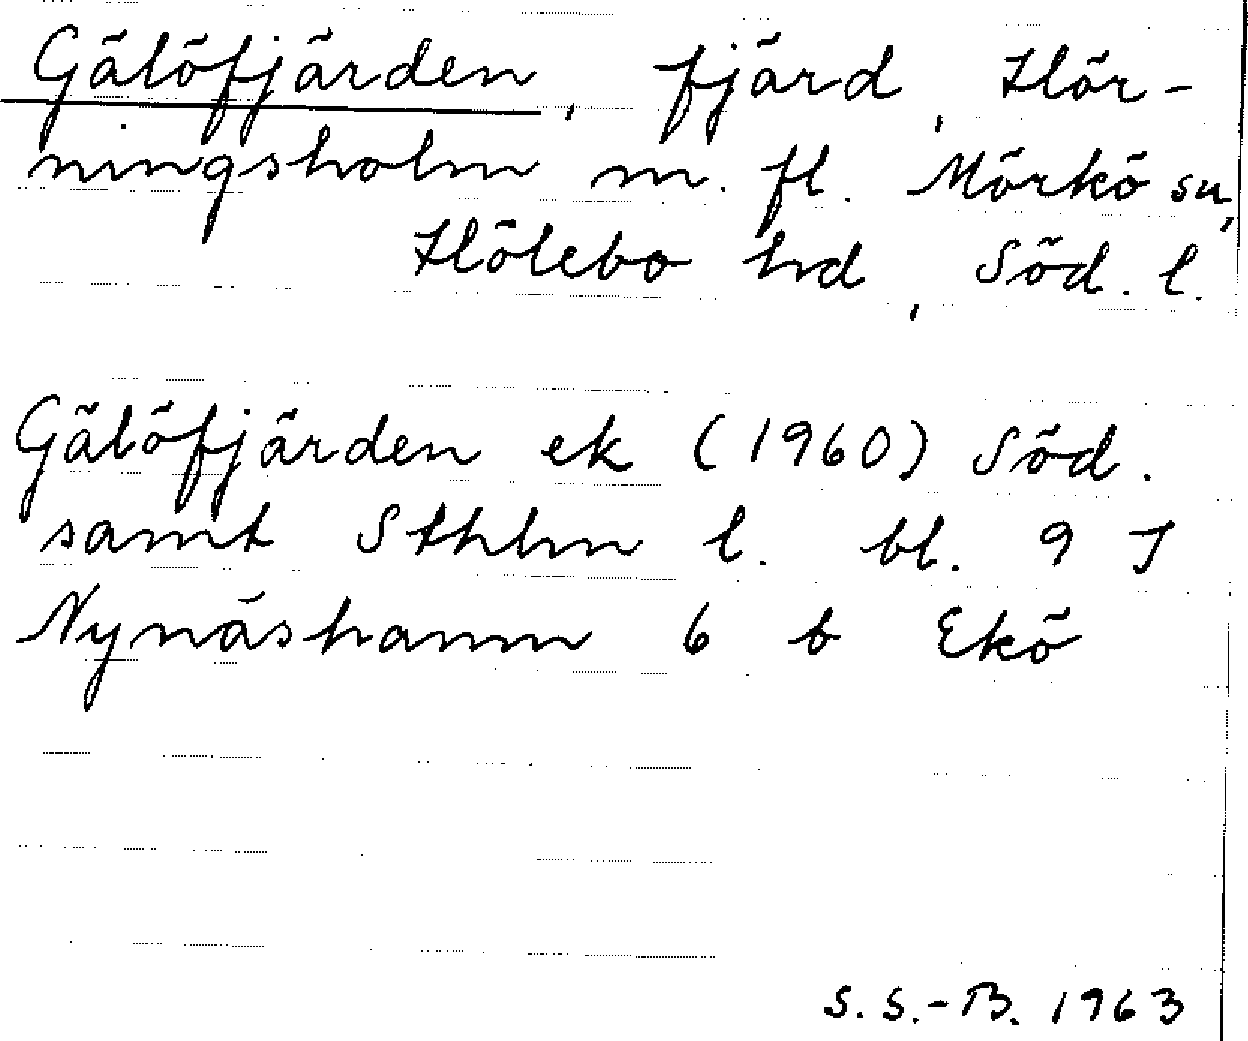 Gälöfjärden, fjärd, Hör-
ningsholm m. fl. Mörkö sn,
Hölebo hd, Söd. l.
Gälöfjärden ek (1960) Söd.
samt Sthlm l. bl. 9 J
Nynäshamn 6 b Ekö
S. S.-B. 1963